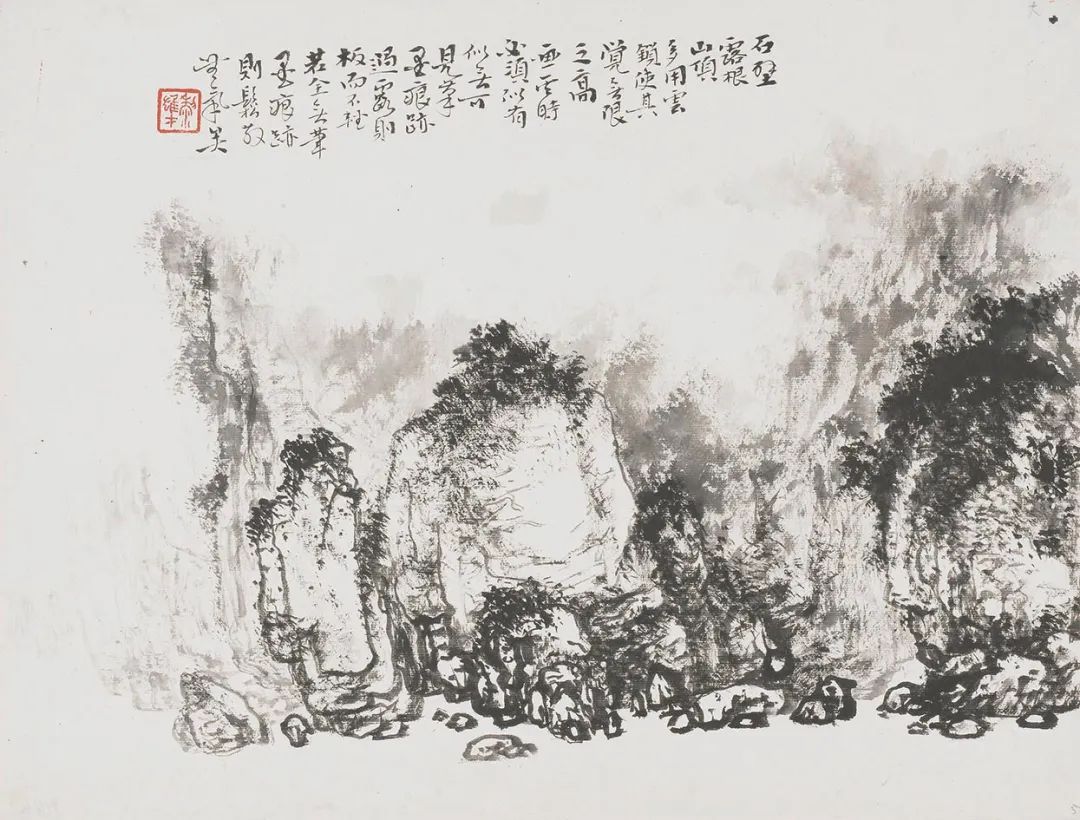 石壁
露根
山頂
多用雲
鎖使其
覺無限
之高
画雲時
必須似有
似無可
見筆
墨痕跡
過露則
板而不輕
若全無筆
墨痕跡
則鬆散
無氣矣
黎雄才